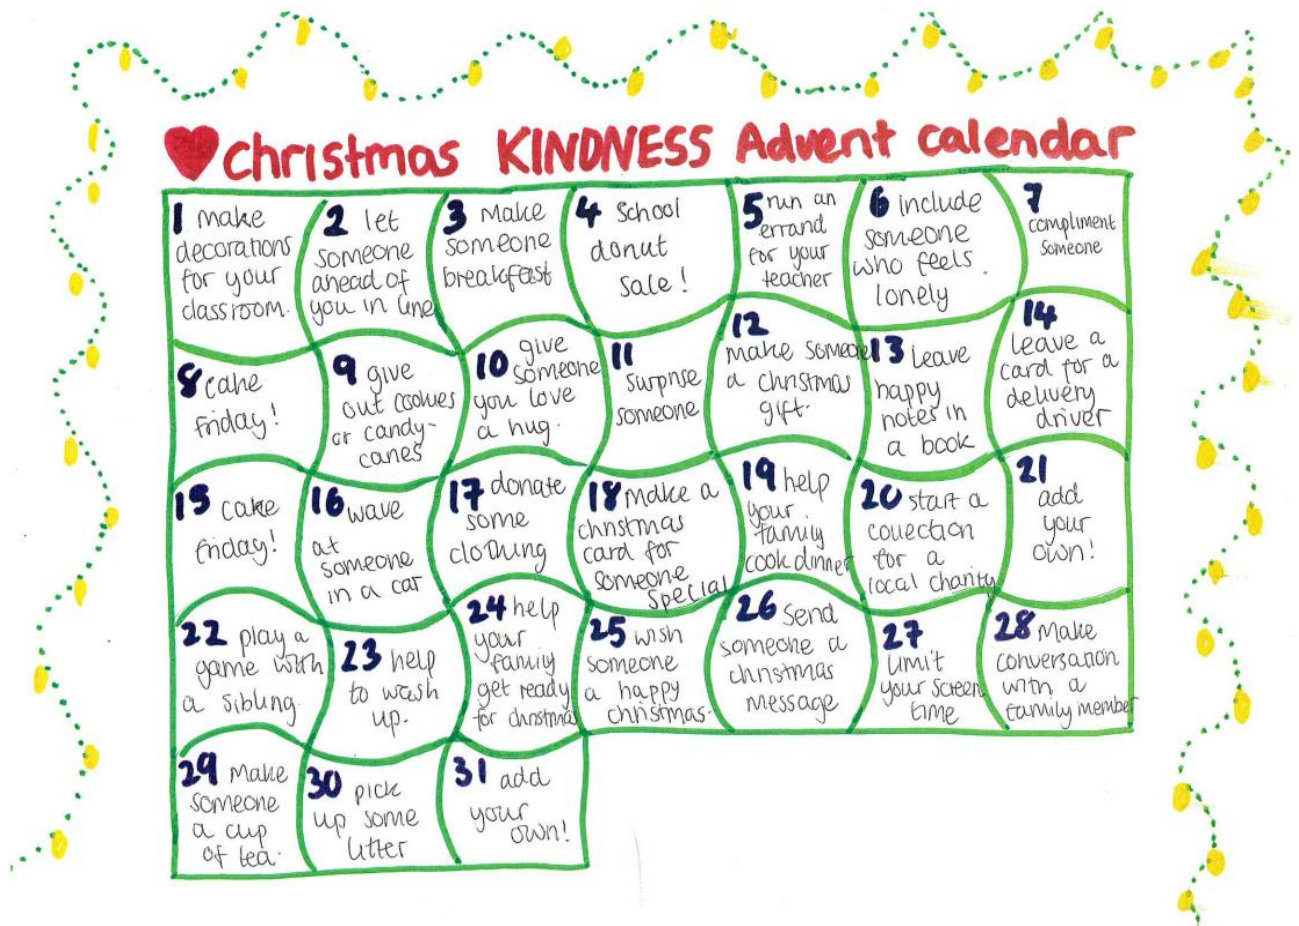 christmas KINDNESS Advent calendar
1 make
decorations
for your
classroom.
2 let
someone
ahead of
you in line
3 Make
someone
breakfast
4 School
donut
Sale!
5 run an
errand
for your
teacher
6 include
someone
who feels
lonely
7
compliment
someone
8 cake
friday!
9 give
out cookies
or candy-
canes
10 give
someone
you love
a hug.
11
surprise
someone
12
make someone
a christmas
gift.
13 leave
happy
notes in
a book
14
leave a
card for a
delivery
driver
15 cake
friday!
16 wave
at
someone
in a car
17 donate
some
clothing
18 make a
christmas
card for
someone
special
19 help
your
family
cook dinner
20 start a
collection
for a
local charity
21
add
your
own!
22 play a
game with
a sibling.
23 help
to wash
up.
24 help
your
family
get ready
for christmas
25 wish
someone
a happy
christmas.
26 Send
someone a
christmas
message
27
limit
your screen
time
28 Make
conversation
with a
family member
29 Make
someone
a cup
of tea.
30 pick
up some
litter
31 add
your
own!